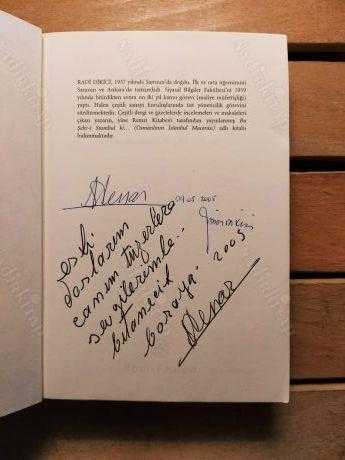 RADİ DİKİCİ, 1937 yılında Samsun'da doğdu. İlk ve orta öğrenimini
Samsun ve Ankara'da tamamladı. Siyasal Bilgiler Fakültesi'ni 1959
yılında bitirdikten sonra on iki yıl kamu görevi (maliye müfettişliği)
yaptı. Halen çeşitli sanayi kuruluşlarında üst yöneticilik görevini
sürdürmektedir. Çeşitli dergi ve gazetelerde incelemeleri ve makaleleri
çıkan yazarın, yine Remzi Kitabevi tarafından yayınlanmış Bu
Şehr-i Stanbul ki... (Osmanlının İstanbul Macerası) adlı kitabı
bulunmaktadır.
09.05 2005
eski
dostlarım
canım
sevgilerimle..
bitanecik
2005